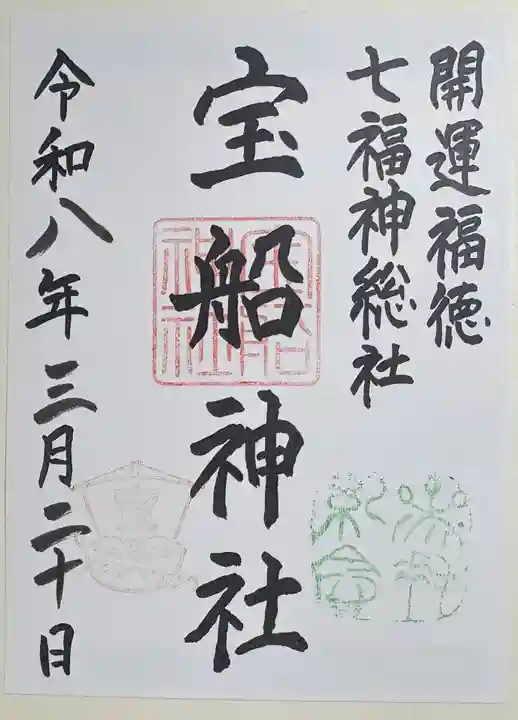 開運福徳
七福神総社
宝船神社
令和八年三月二十日